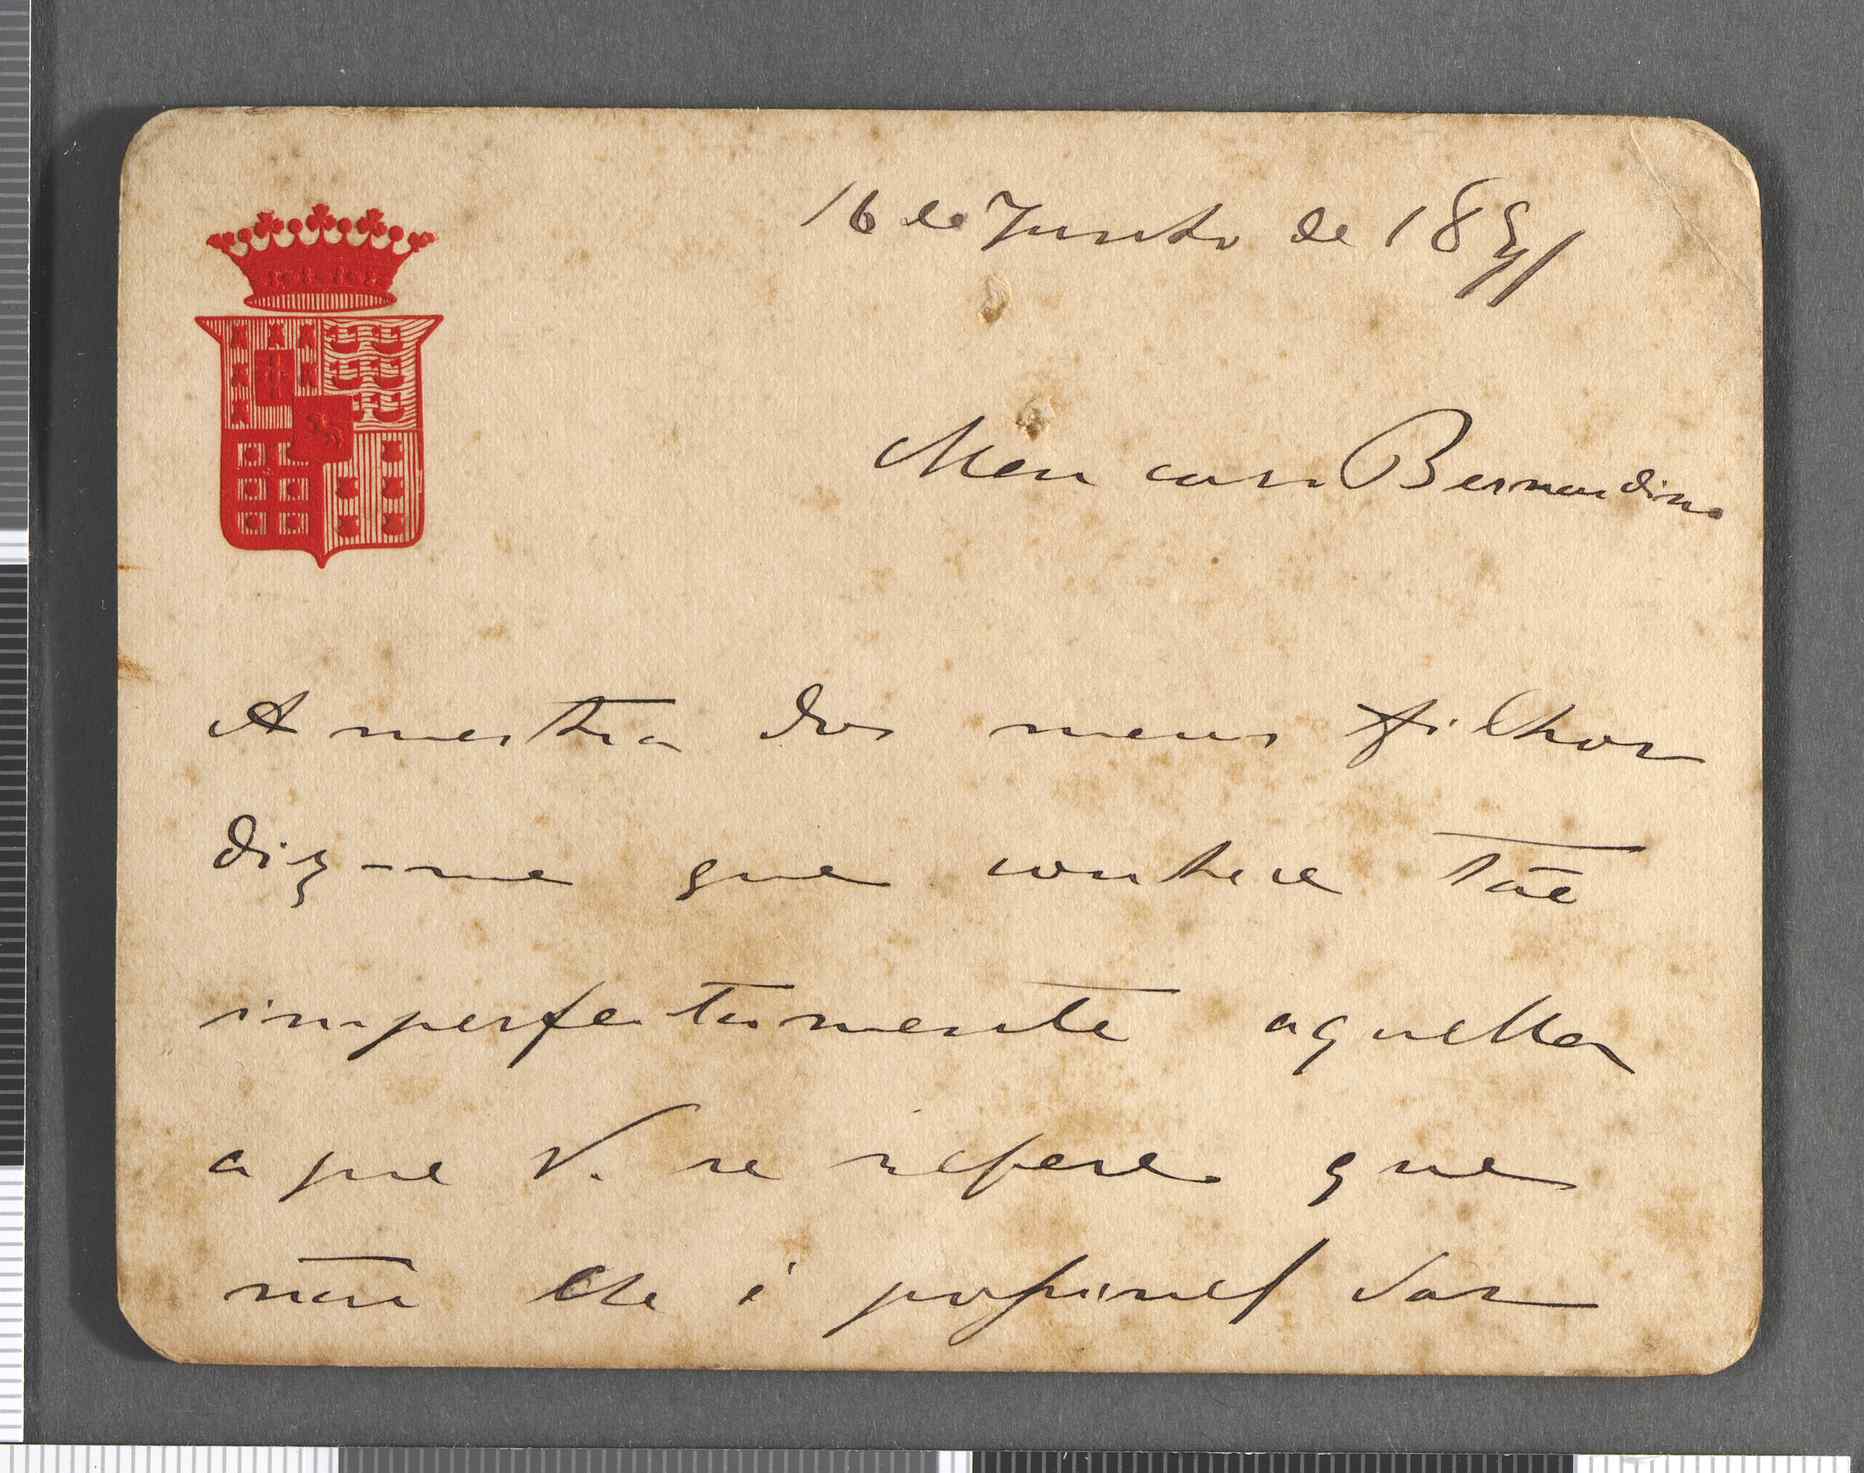 16 de Junho de 189
Meu caro Bernardino
A mestra dos meus filhos
diz-me que conhece tão
imperfeitamente aquella
a que V. se refere que
não lhe é possivel dar